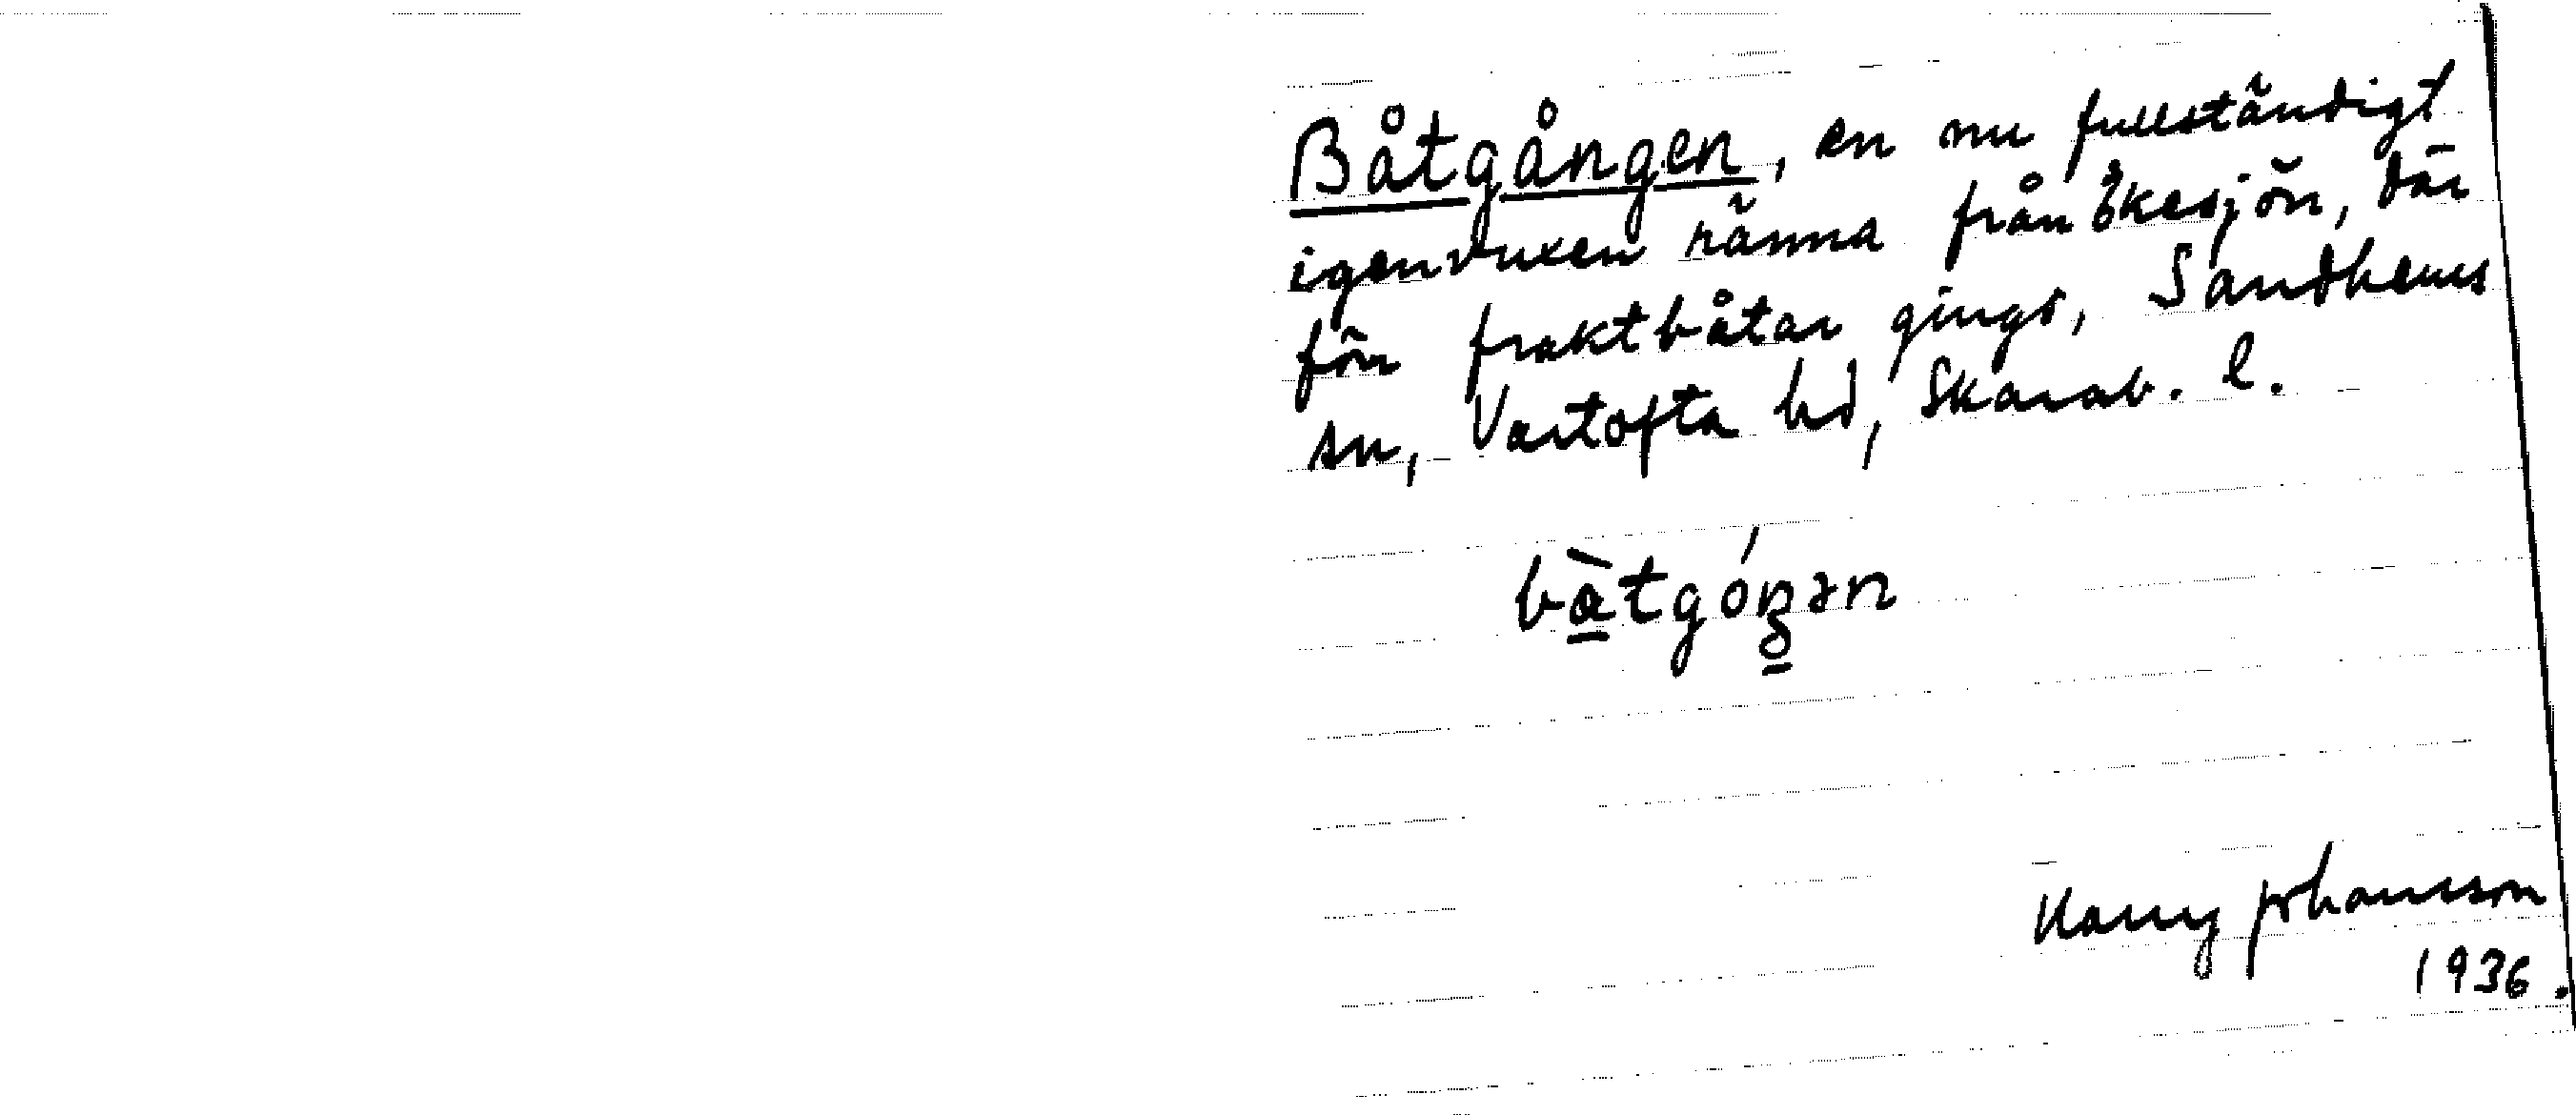 Båtgången, en nu fullständigt
igenvuxen ränna från Åkesjön, där
för fraktbåtar gingo, Sandhems
sn, Vartofta hd, Skarab. l.
bàtgóŋən
Harry Johansson
1936.